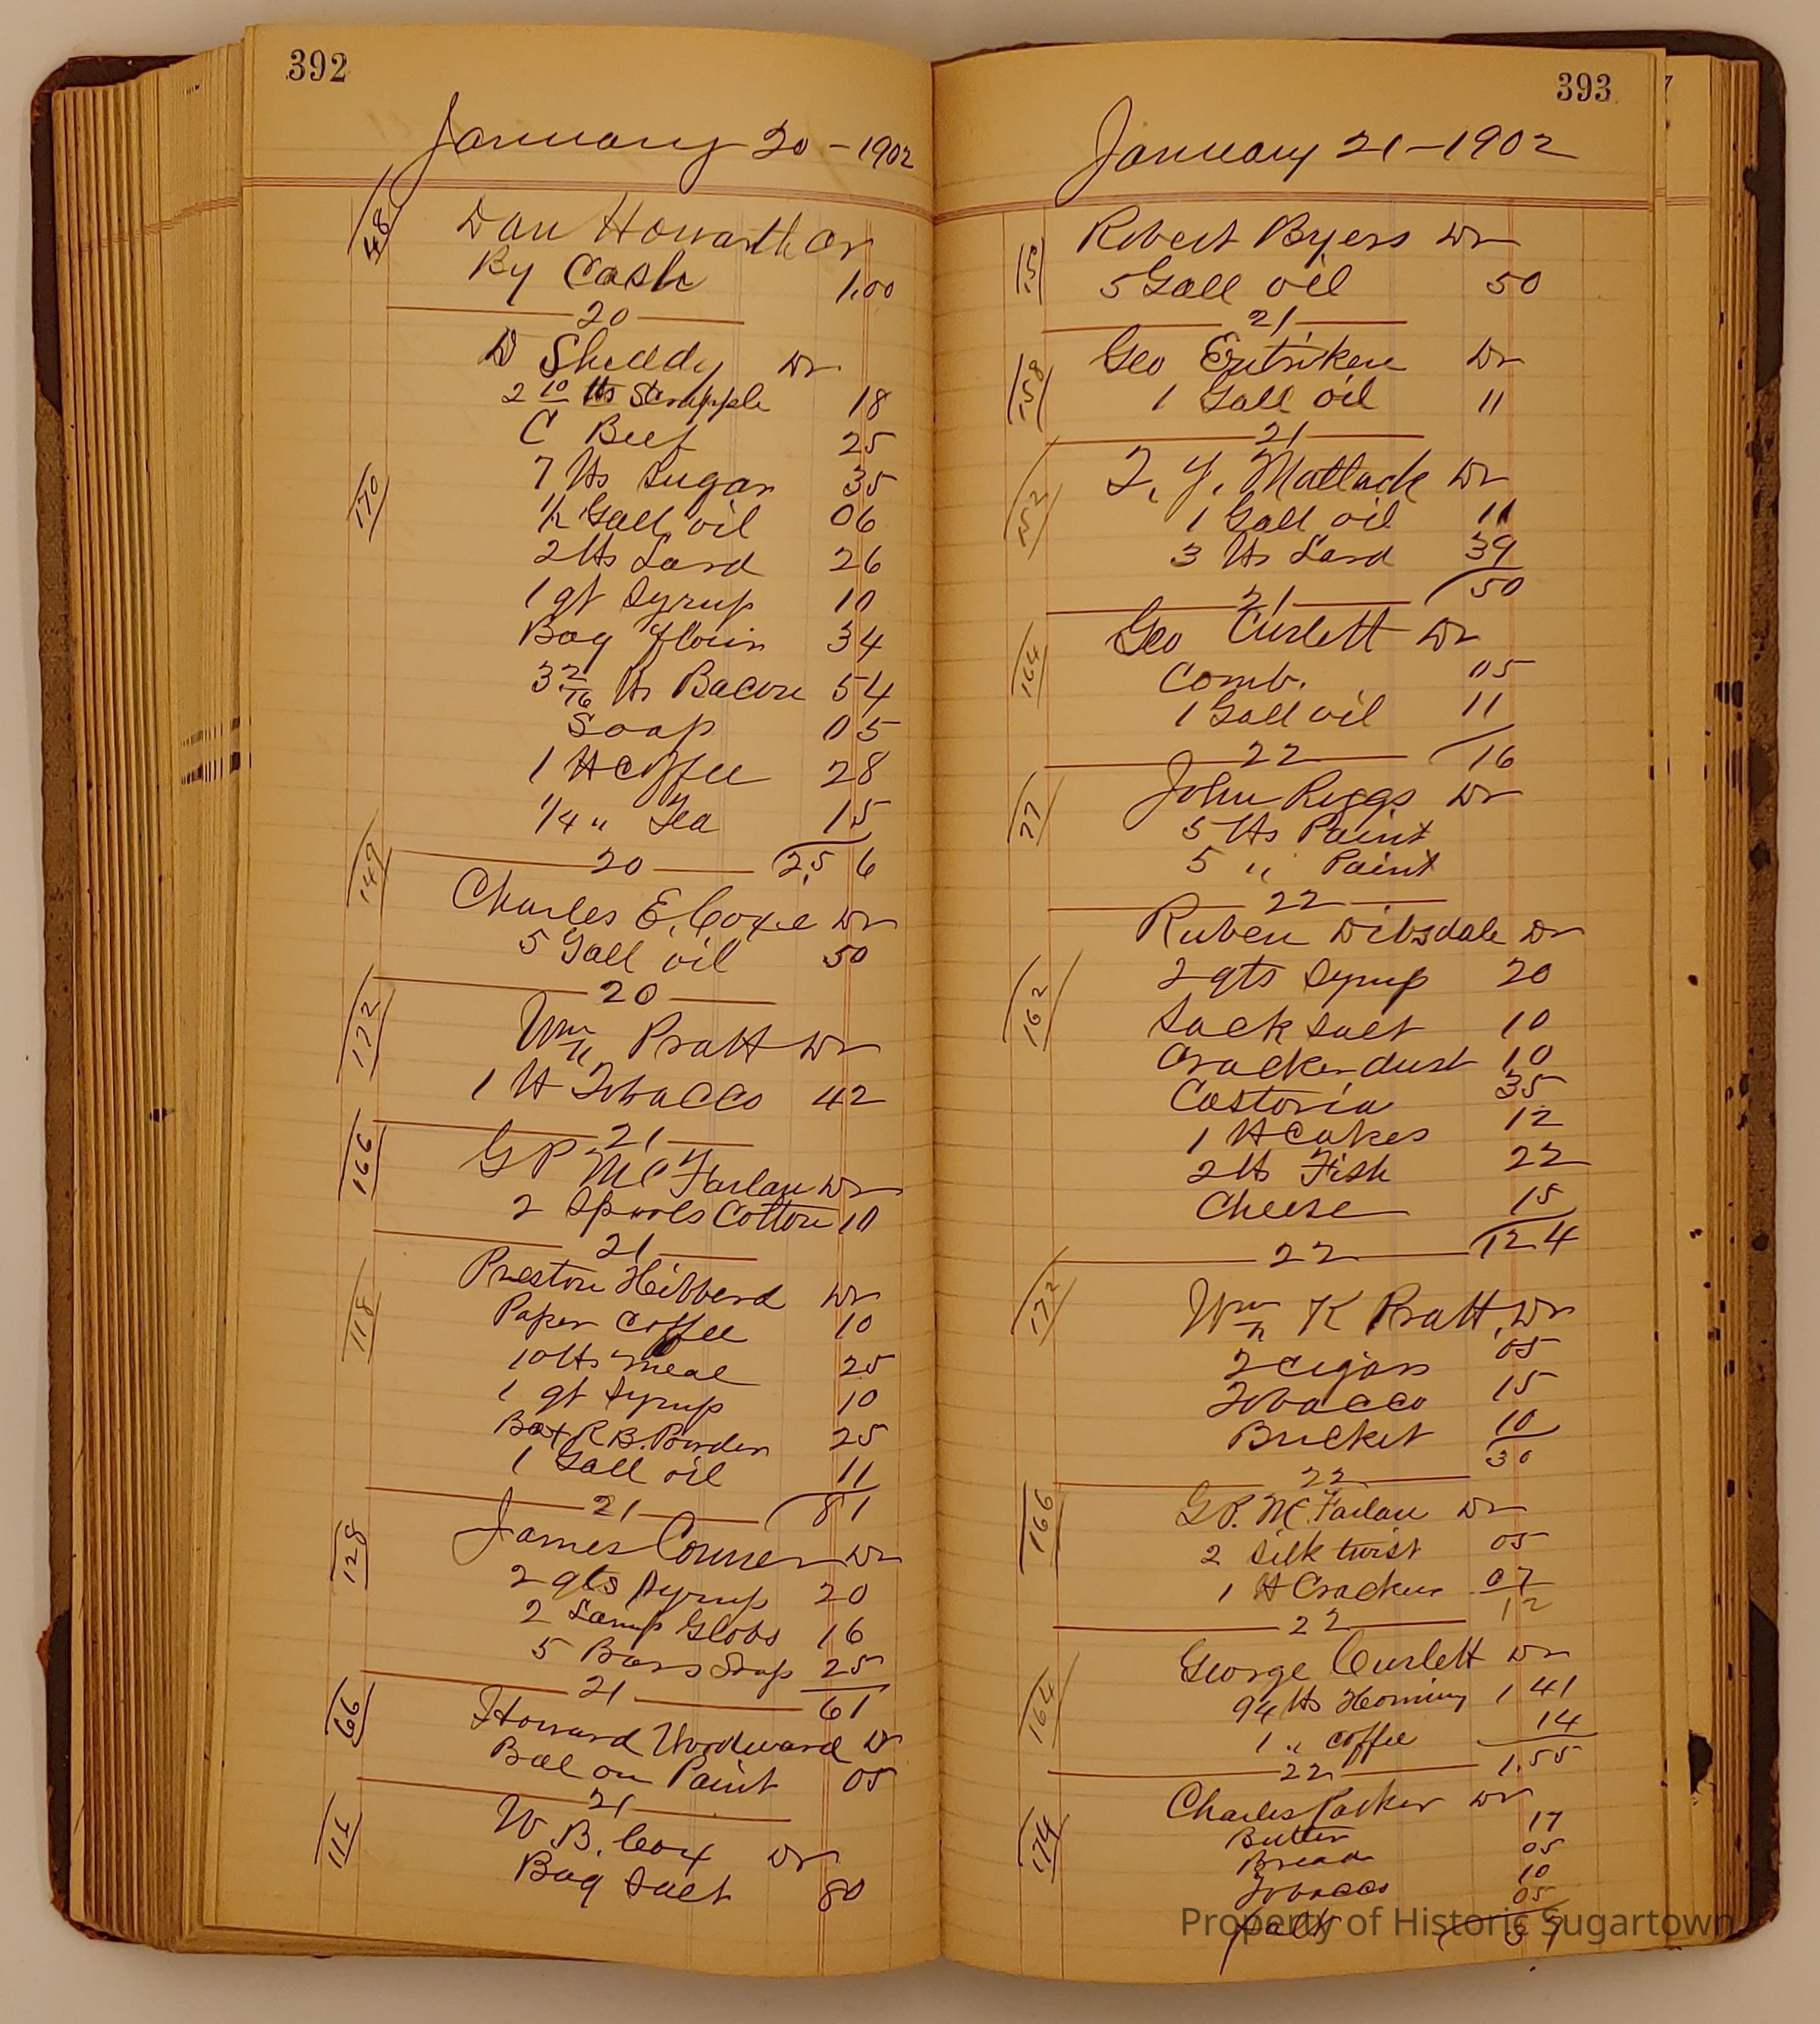 392
January 20 - 1902
48
Dan Howarth Cr
By Cash 1.00
20
D Sheddy Dr
2 10 lbs Scrapple 18
C Beef 25
170
7 lbs Sugar 35
1/2 Gall oil 06
2 lbs Lard 26
1 qt Syrup 10
Bag flour 34
3 2/16 lbs Bacon 54
Soap 05
1 lb Coffee 28
1/4 " Tea 15
20 2.56
149
Charles E. Coxe Dr
5 Gall oil 50
20
172
Wm Pratt Dr
1 lb Tobacco 42
21
166
G P McFarlan Dr
2 Spools Cotton 10
21
118
Preston Hibberd Dr
Paper Coffee 10
10 lbs meal 25
1 qt Syrup 10
Box R B. Powder 25
1 Gall oil 11
21 81
128
James Conner Dr
2 qts Syrup 20
2 Lamp Globs 16
5 Bars Soap 25
21 61
66
Howard Woodward Dr
Bal on Paint 05
21
W B. Cox Dr
Bag Salt 80
393
January 21 - 1902
Robert Byers Dr
5 Gall oil 50
21
158
Geo Entriken Dr
1 Gall oil 11
21
152
T. J. Matlack Dr
1 Gall oil 11
3 lbs Lard 39
21 50
164
Geo Curlett Dr
Comb. 05
1 Gall oil 11
22 16
77
John Riggs Dr
5 lbs Paint
5 " Paint
22
Ruben Dibsdale Dr
162
2 qts Syrup 20
Sack Salt 10
Cracker dust 10
Castoria 35
1 lb Cakes 12
2 lbs Fish 22
Cheese 15
22 124
172
Wm K Pratt, Dr
2 cigars 05
Tobacco 15
Bucket 10
30
22
166
G P. McFarlan Dr
2 Silk twist 05
1 lb Crackers 07
22 12
164
George Curlett Dr
94 lbs Hominy 1 41
1 " coffee 14
22 1.55
174
Charles Packer Dr
Butter 17
Bread 05
Tobacco 10
Salt 05
37
Property of Historic Sugartown